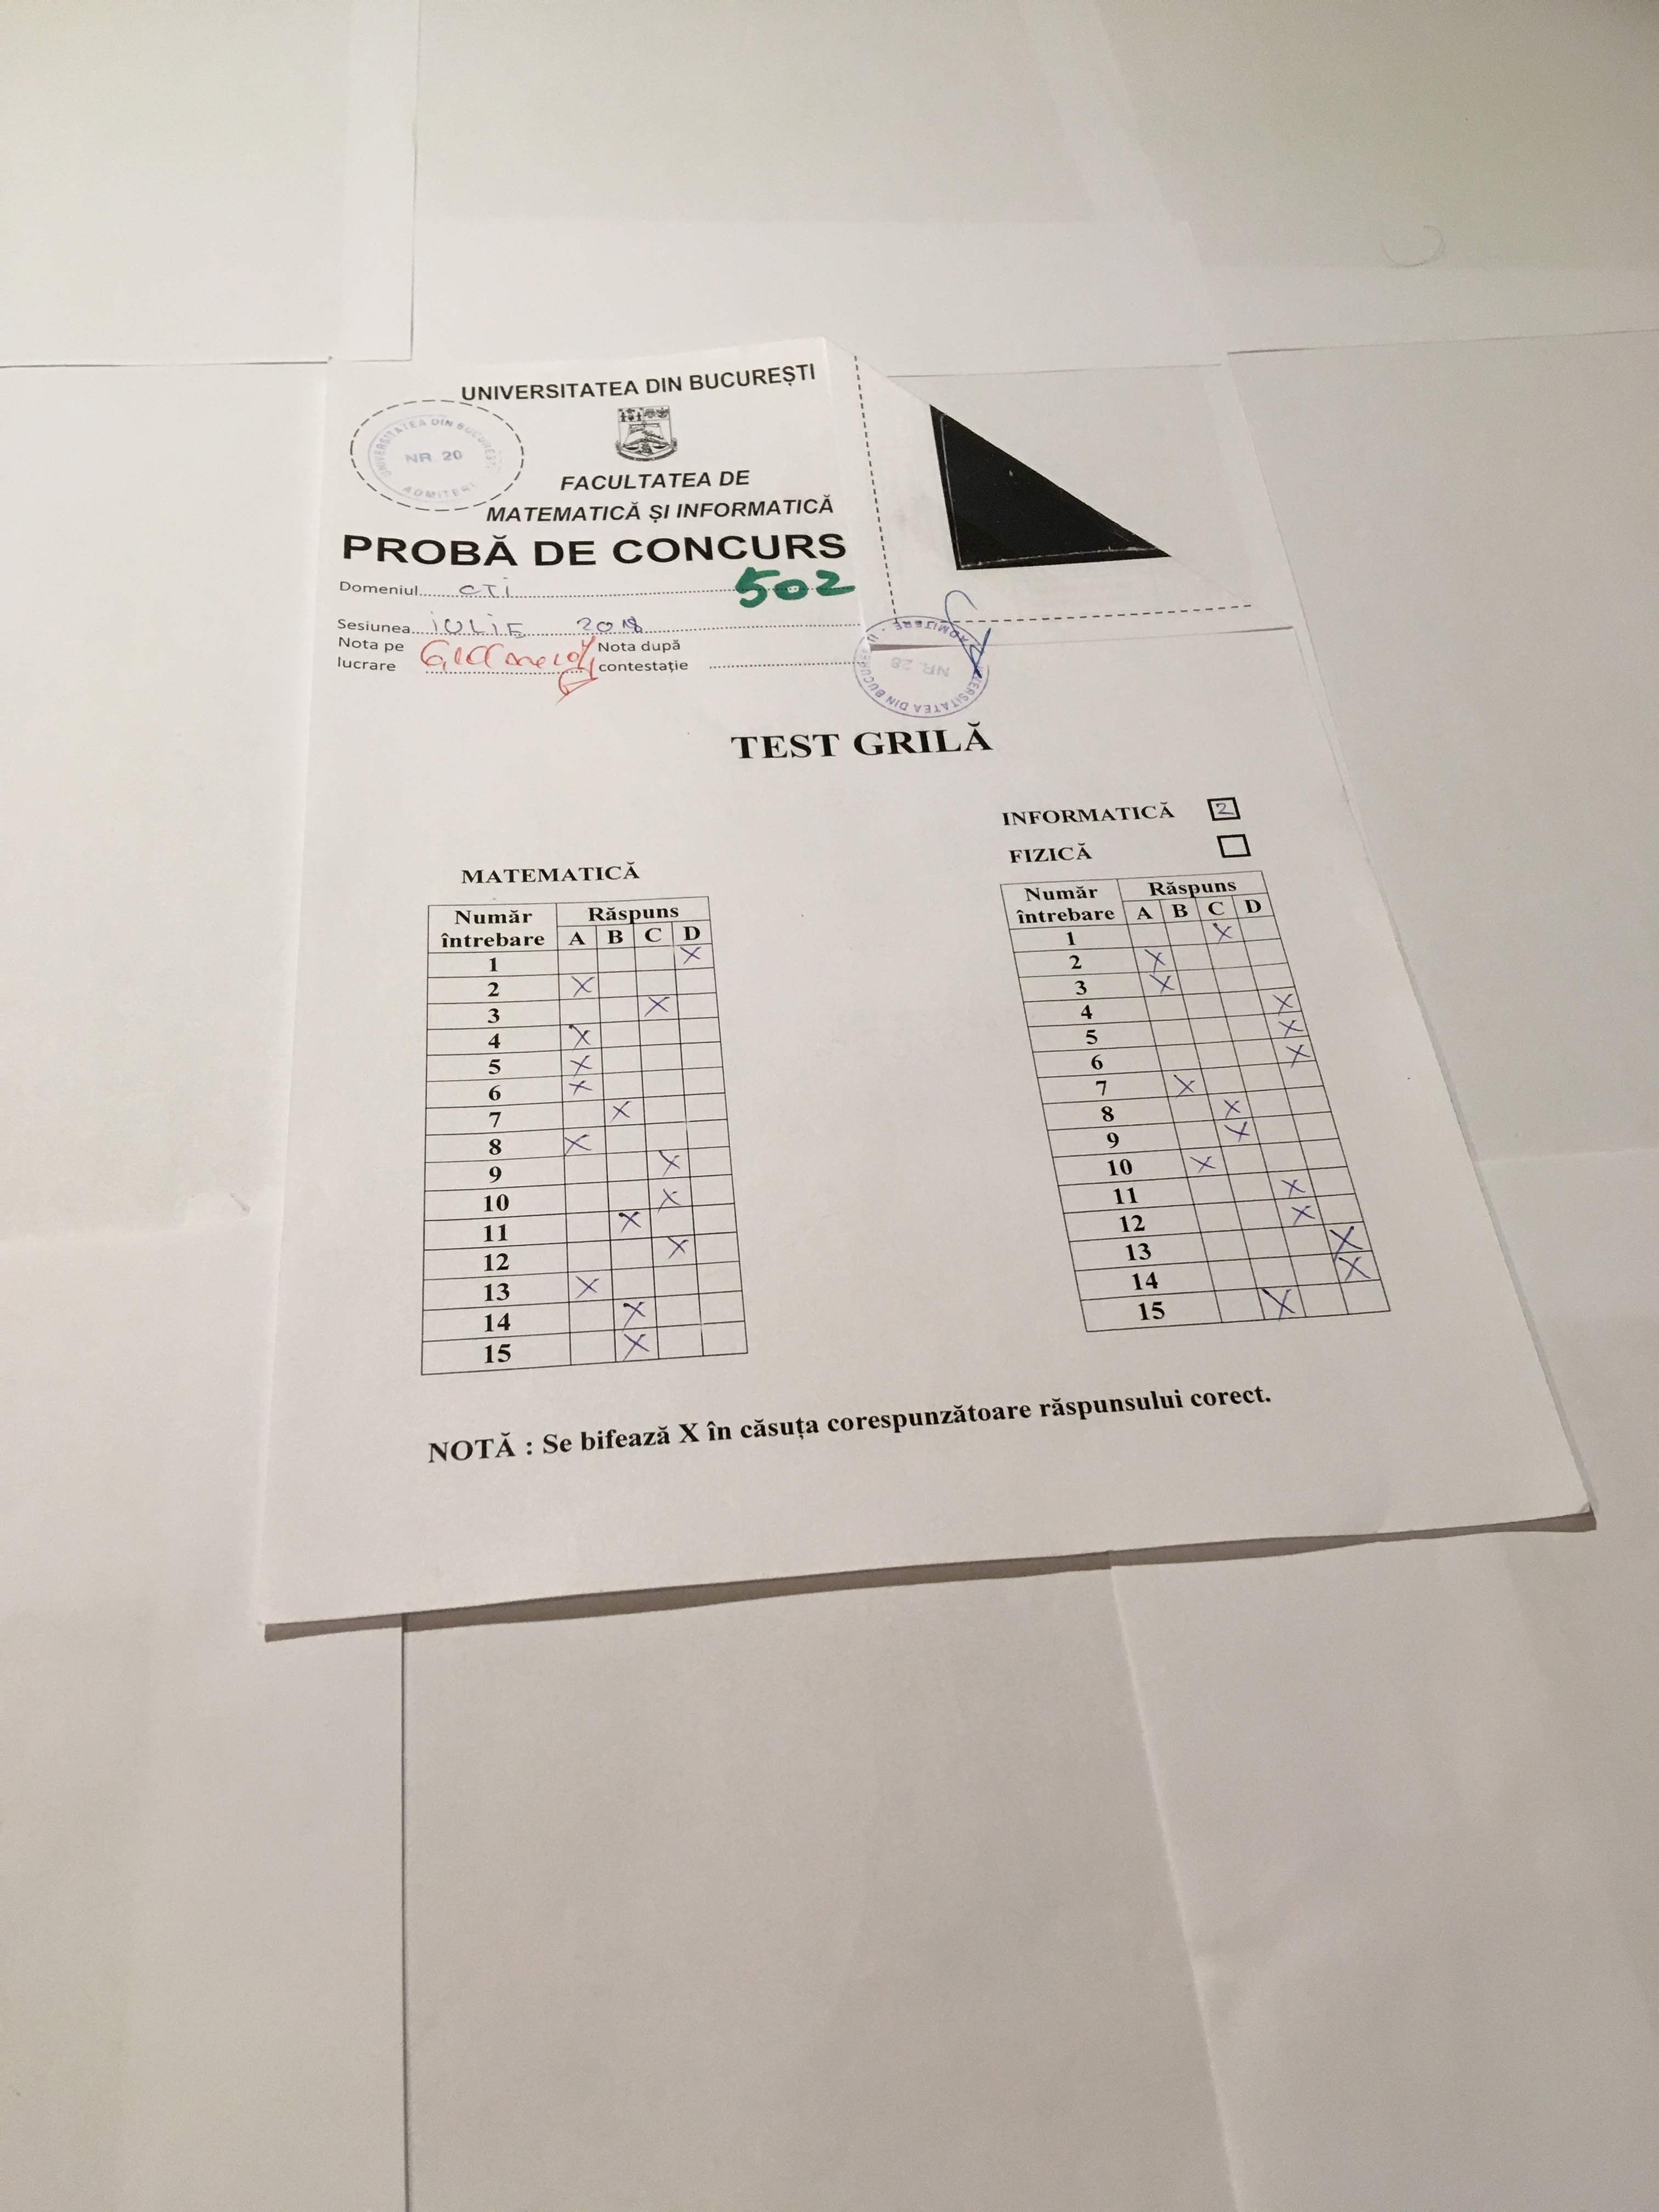 UNIVERSITATEA DIN BUCUREȘTI
UNIVERSITATEA DIN BUCUREȘTI
NR. 20
ADMITERE
FACULTATEA DE
MATEMATICĂ ȘI INFORMATICĂ
PROBĂ DE CONCURS
Domeniul CTI 502
Sesiunea IULIE 2018
Nota pe lucrare
Nota după contestație
UNIVERSITATEA DIN BUCUREȘTI
ADMITERE
NR. 28
TEST GRILĂ
INFORMATICĂ 2
FIZICĂ
MATEMATICĂ
Număr întrebare Răspuns
A B C D
1 X
2 X
3 X
4 X
5 X
6 X
7 X
8 X
9 X
10 X
11 X
12 X
13 X
14 X
15 X
Număr întrebare Răspuns
A B C D
1 X
2 X
3 X
4 X
5 X
6 X
7 X
8 X
9 X
10 X
11 X
12 X
13 X
14 X
15 X
NOTĂ : Se bifează X în căsuța corespunzătoare răspunsului corect.